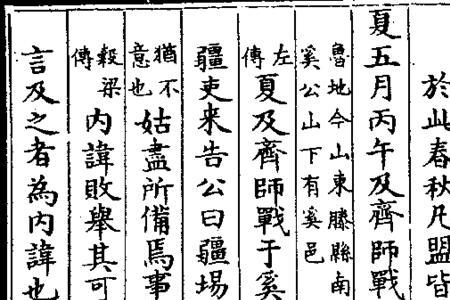 於此春秋凡盟皆
夏五月丙午及齊師戰
魯地今山東滕縣南
奚公山下有奚邑
左傳
夏及齊師戰于奚
疆吏来告公曰疆埸
猶不意也
姑盡所備焉事
穀梁傳
内諱敗舉其可
言及之者為内諱也